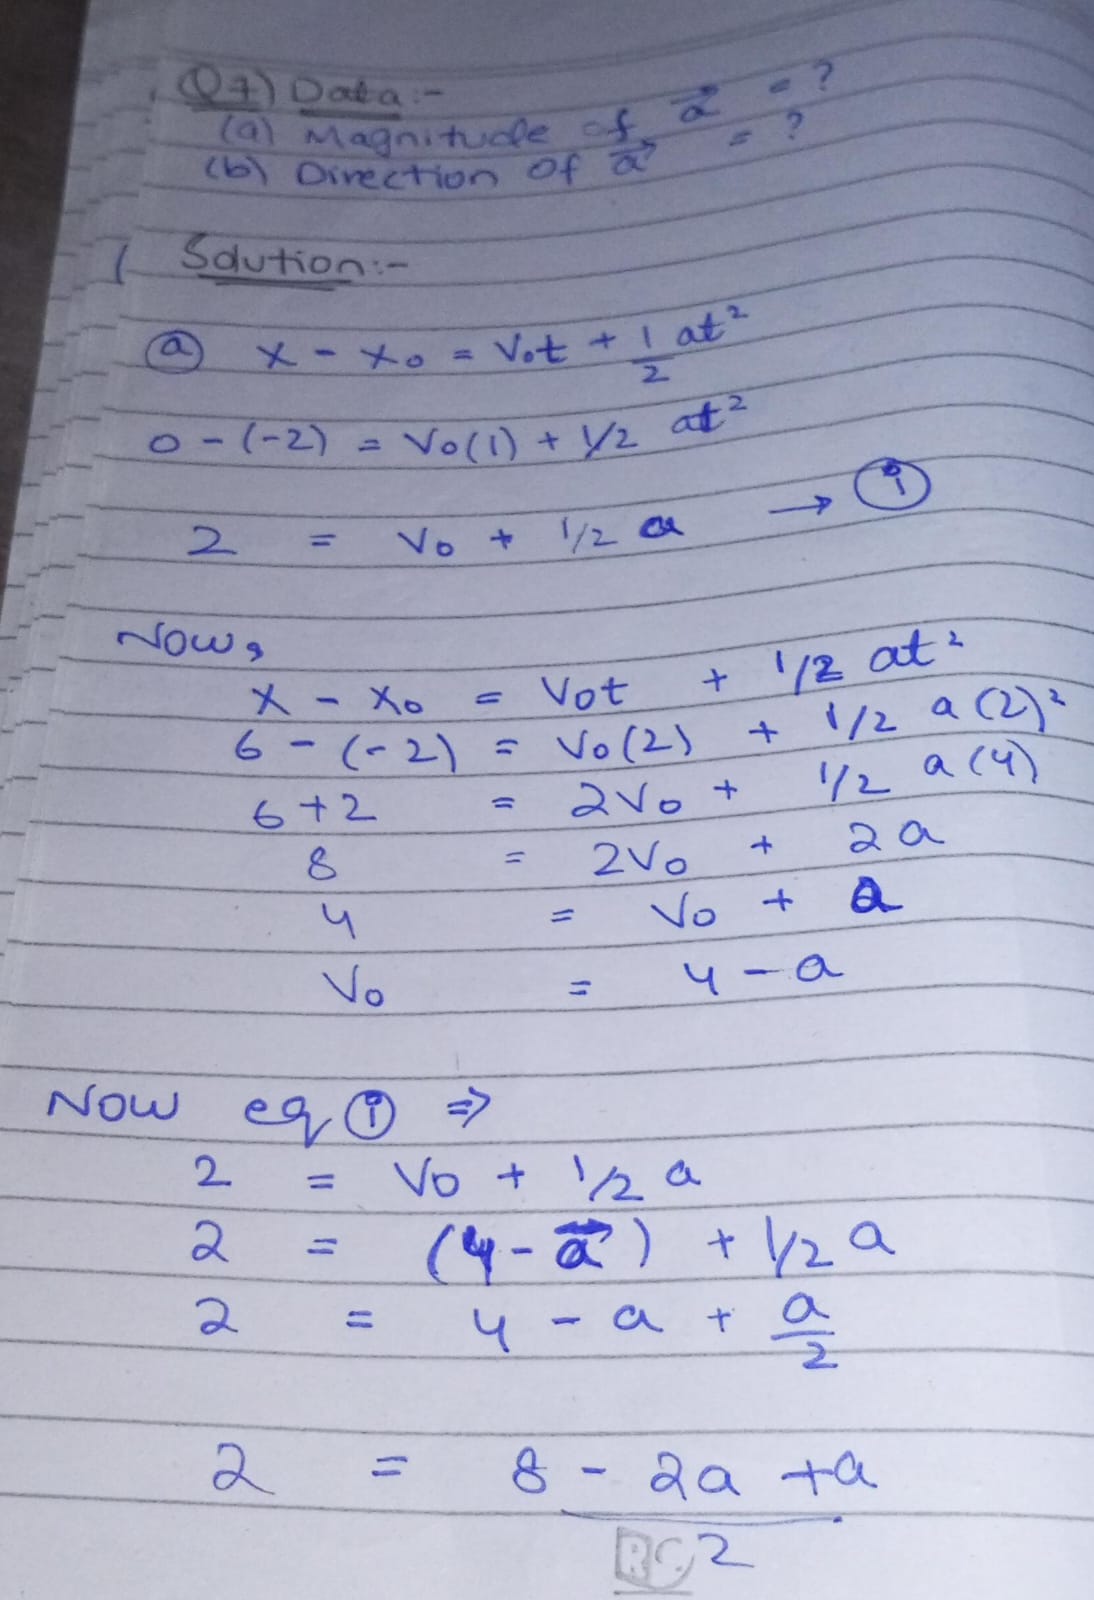 Q7) Data:-
(a) Magnitude of a⃗ = ?
(b) Direction of a⃗ = ?
Solution:-
ⓐ x - x₀ = V₀t + 1/2 at²
0 - (-2) = V₀(1) + 1/2 at²
2 = V₀ + 1/2 a → ⓘ
Now,
x - x₀ = V₀t + 1/2 at²
6 - (-2) = V₀(2) + 1/2 a(2)²
6+2 = 2V₀ + 1/2 a(4)
8 = 2V₀ + 2a
4 = V₀ + a
V₀ = 4 - a
Now eq ⓘ ⇒
2 = V₀ + 1/2 a
2 = (4 - a⃗) + 1/2 a
2 = 4 - a + a/2
2 = 8 - 2a + a / 2